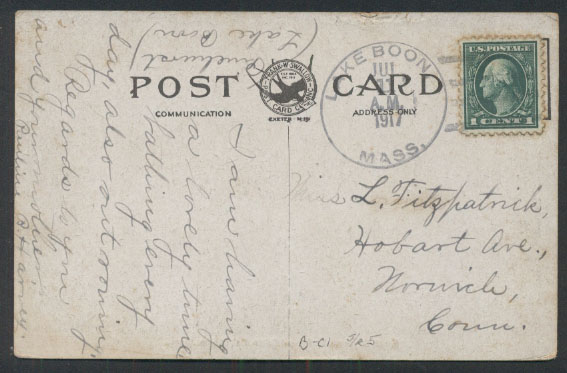 POST CARD
COMMUNICATION
ADDRESS ONLY
FRANK W. SWALLOW
POST CARD CO., INC.
EXETER - N.H.
LAKE BOON
JUL
A.M.
1917
MASS.
U.S. POSTAGE
1 CENT 1
Pinehurst
(Lake Boon)
I am having
a lovely time
bathing every
day also out rowing,
Regards to you
and your mother
Pauline R.
Miss L. Fitzpatrick,
Hobart Ave.,
Norwich,
Conn.
B-C1